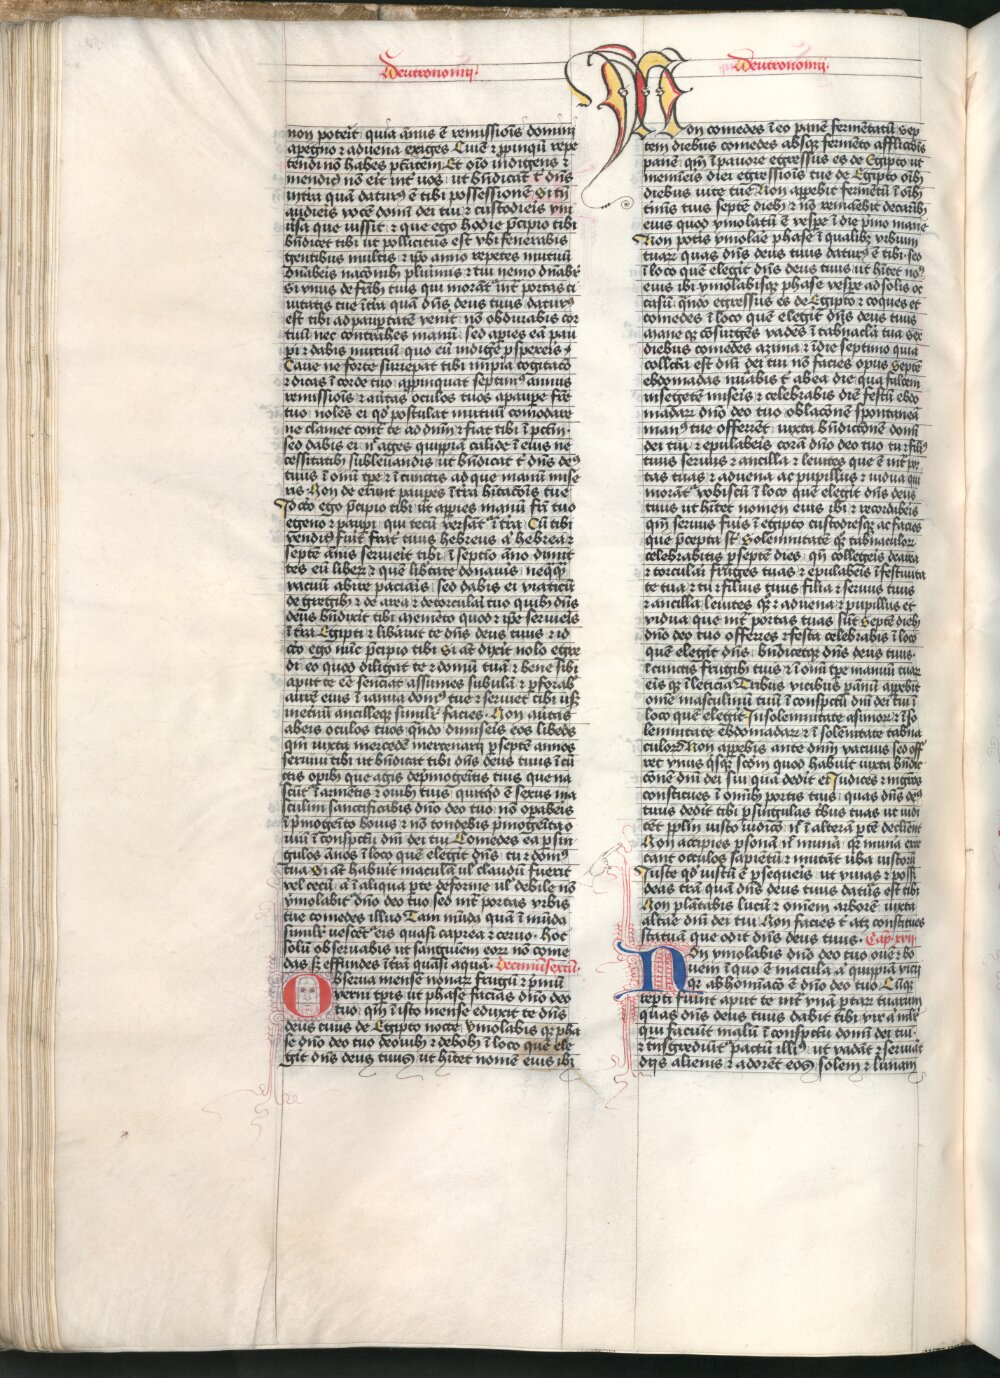 Deutronomij.
non poterit quia annus e remissiois domini
a peregrino et aduena exiges Ciuem et ppinqu repe
tendi no habes ptatem Et oio indigens et
mendicus no erit int uos ut bndicat te dns
in tra qua datur e tibi possessione Si tn
audieris voce domi dei tui et custodieris vni
uersa que iussit et que ego hodie pcipio tibi
bndicet tibi ut pollicitus est vbi fenerabis
gentibus multis et ipe a nullo repetes mutuu
dnaberis nacoib plurimis et tui nemo dnabit
Si vnus de frib tuis qui morant int portas ci
uitatis tue i tra qua dns deus tuus daturus
est tibi ad paupertate venit no obdurabis cor
tuu nec contrahes manu sed apies ea pau
pi et dabis mutuu quo eu indige pspexeris
Caue ne forte surrepat tibi impia cogitatio
et dicas i corde tuo appinquat septimus annus
remissionis et auertas oculos tuos a paupe fre
tuo noles ei qd postulat mutuu comodare
ne clamet cont te ad dnm et fiat tibi i pctm
sed dabis ei nec ages quippia callide i eius ne
cessitatib subleuandis ut bndicat te dns deus
tuus i omi tpe et i cunctis ad que manu mise
ris Non deerunt paupes i tra hitacois tue
Idcirco ego pcipio tibi ut apies manu fri tuo
egeno et paupi qui tecu versat i tra Cu tibi
venditus fuit frat tuus hebreus a hebrea et
septe annis seruierit tibi i septimo ano dimit
tes eu liber et que libtate donauis neqq
vacuu abire paciaris sed dabis ei viaticu
de gregib et de area et de torculari tuo quib dns
deus bndixit tibi memeto quod et ipe seruieris
i tra Egipti et liberauit te dns deus tuus et id
circo ego nuc pcipio tibi Si at dixit nolo egre
di eo quod diligat te et domu tua et bene sibi
aput te ee senciat assumes subula et pforab
aure eius i ianua dom tue et seruiet tibi usq
i eternu ancilleque similr facies Non auertas
ab eis oculos tuos qndo dimiseris eos liberos
qm iuxta mercede mercenarij p septe annos
seruiuit tibi ut bndicat tibi dns deus tuus i cu
ctis opib que agis De pmogeitis tuis que na
scut i armetis et ouib tuis quitqd e sexus ma
sculini sanctificabis dno deo tuo no opaberis
i pmogeito bouis et no tondebis pmogeita o
uiu i conspctu dni dei tui Comedes ea p sin
gulos anos i loco que elegit dns tu et domus
tua Si at habuit macula ul claudu fuerit
vel cecu a i aliqua pte deforme ul debile no
ymolabit dno deo tuo sed int portas vrbis
tue comedes illud Tam mudus quam i mudus
similr vescet eis quasi caprea et ceruo hoc
solu obseruabis ut sanguiem eor non come
das s effundes i tra quasi aqua Decimusextus
Obserua mense nouar frugum et primu
verni tpis ut phase facias dno deo
tuo qm i isto mense eduxit te dns
deus tuus de Egipto nocte ymolabis q pha
se dno deo tuo de ouib et de bob i loco que ele
git dns deus tuus ut hitet nome eius ibi
Deutronomij.
Non comedes i eo pane fermetatu sep
tem diebus comedes absq fermeto afflictois
pane qm i pauore egressus es de Egipto ut
memieris diei egressiois tue de Egipto oib
diebus vite tue Non apparebit fermetu i oib
tmis tuis septe dieb et no remaebit de carib
eius quod ymolatu e vespe i die pmo mane
Non potis ymolare phase i qualib vrbium
tuar quas dns deus tuus datur e tibi sed
i loco que elegit dns deus tuus ut hitet no
eius ibi ymolabisq phase vespe ad solis oc
casu qndo egressus es de Egipto et coques et
comedes i loco que elegit dns deus tuus
Mane q cosurges vades i tabnacla tua Sex
diebus comedes azima et i die septimo quia
collecta est dni dei tui no facies opus Septe
ebdomadas nuabis t ab ea die qua falcem
in segete miseis et celebrabis die festu ebdo
madar dno deo tuo oblacone spontanea
manus tue offerret iuxta bndictione domi
dei tui et epulabeis cora dno deo tuo tu et filius
tuus seruus et ancilla et leuites que e int por
tas tuas et aduena ac pupillus et vidua qui
morat vobiscu i loco que elegit dns deus
tuus ut hitet nomen eius ibi et recordabeis
qm seruus fuis i egipto custodiesq ac facies
que pcepta st Solemnitate q tabnaculor
celebrabitis p septe dies qn collegeis de area
et torculari fruges tuas et epulabeis i festiuita
te tua et tu et filius tuus filia et seruus tuus
et ancilla leuites q et aduena et pupillus et
vidua que int portas tuas sut Septe dieb
dno deo tuo offerres et festa celebrabis i loco
que elegit dns bndicetq dns deus tuus
i cunctis frugib tuis et i omi tpe manuu tuar
eis q i leticia Tribus vicibus p annu appebit
ome masculinu tuu i conspctu dni dei tui i
loco que elegit In solemnitate asimor et i so
lemnitate ebdomadar et i solenitate tabna
culor Non appebis ante dnm vacuus sed off
ret vnus qsq scdm quod habuit iuxta bndic
cone dni dei sui qua dedit ei Iudices et mgros
constitues i omib portis tuis quas dns deus
tuus dedit tibi p singulas tbus tuas ut iudi
cet pplm iusto iudicio n i altera pte declinet
Non accipies psona n muna q muna exce
cant occulos sapietu et mutat uba iustoru
Iuste qd iustu e psequeris ut viuas et possi
deas tra qua dns deus tuus datus est tibi
Non platabis lucu et omem arbore iuxta
altae dni dei tui Non facies t atq constitues
statua que odit dns deus tuus Cap. xvij.
Non ymolabis dno deo tuo oue et bo
uem i quo e macula a quippia vicij
q abhomiaco e dno deo tuo Cu q
repti fuiint aput te int vna ptar tuarum
quas dns deus tuus dabit tibi vir a mulier
qui faciunt malu i conspctu domi dei tui
et tnsgrediut pactu illius ut vadat et seruiat
diis alienis et adoret eos solem et lunam